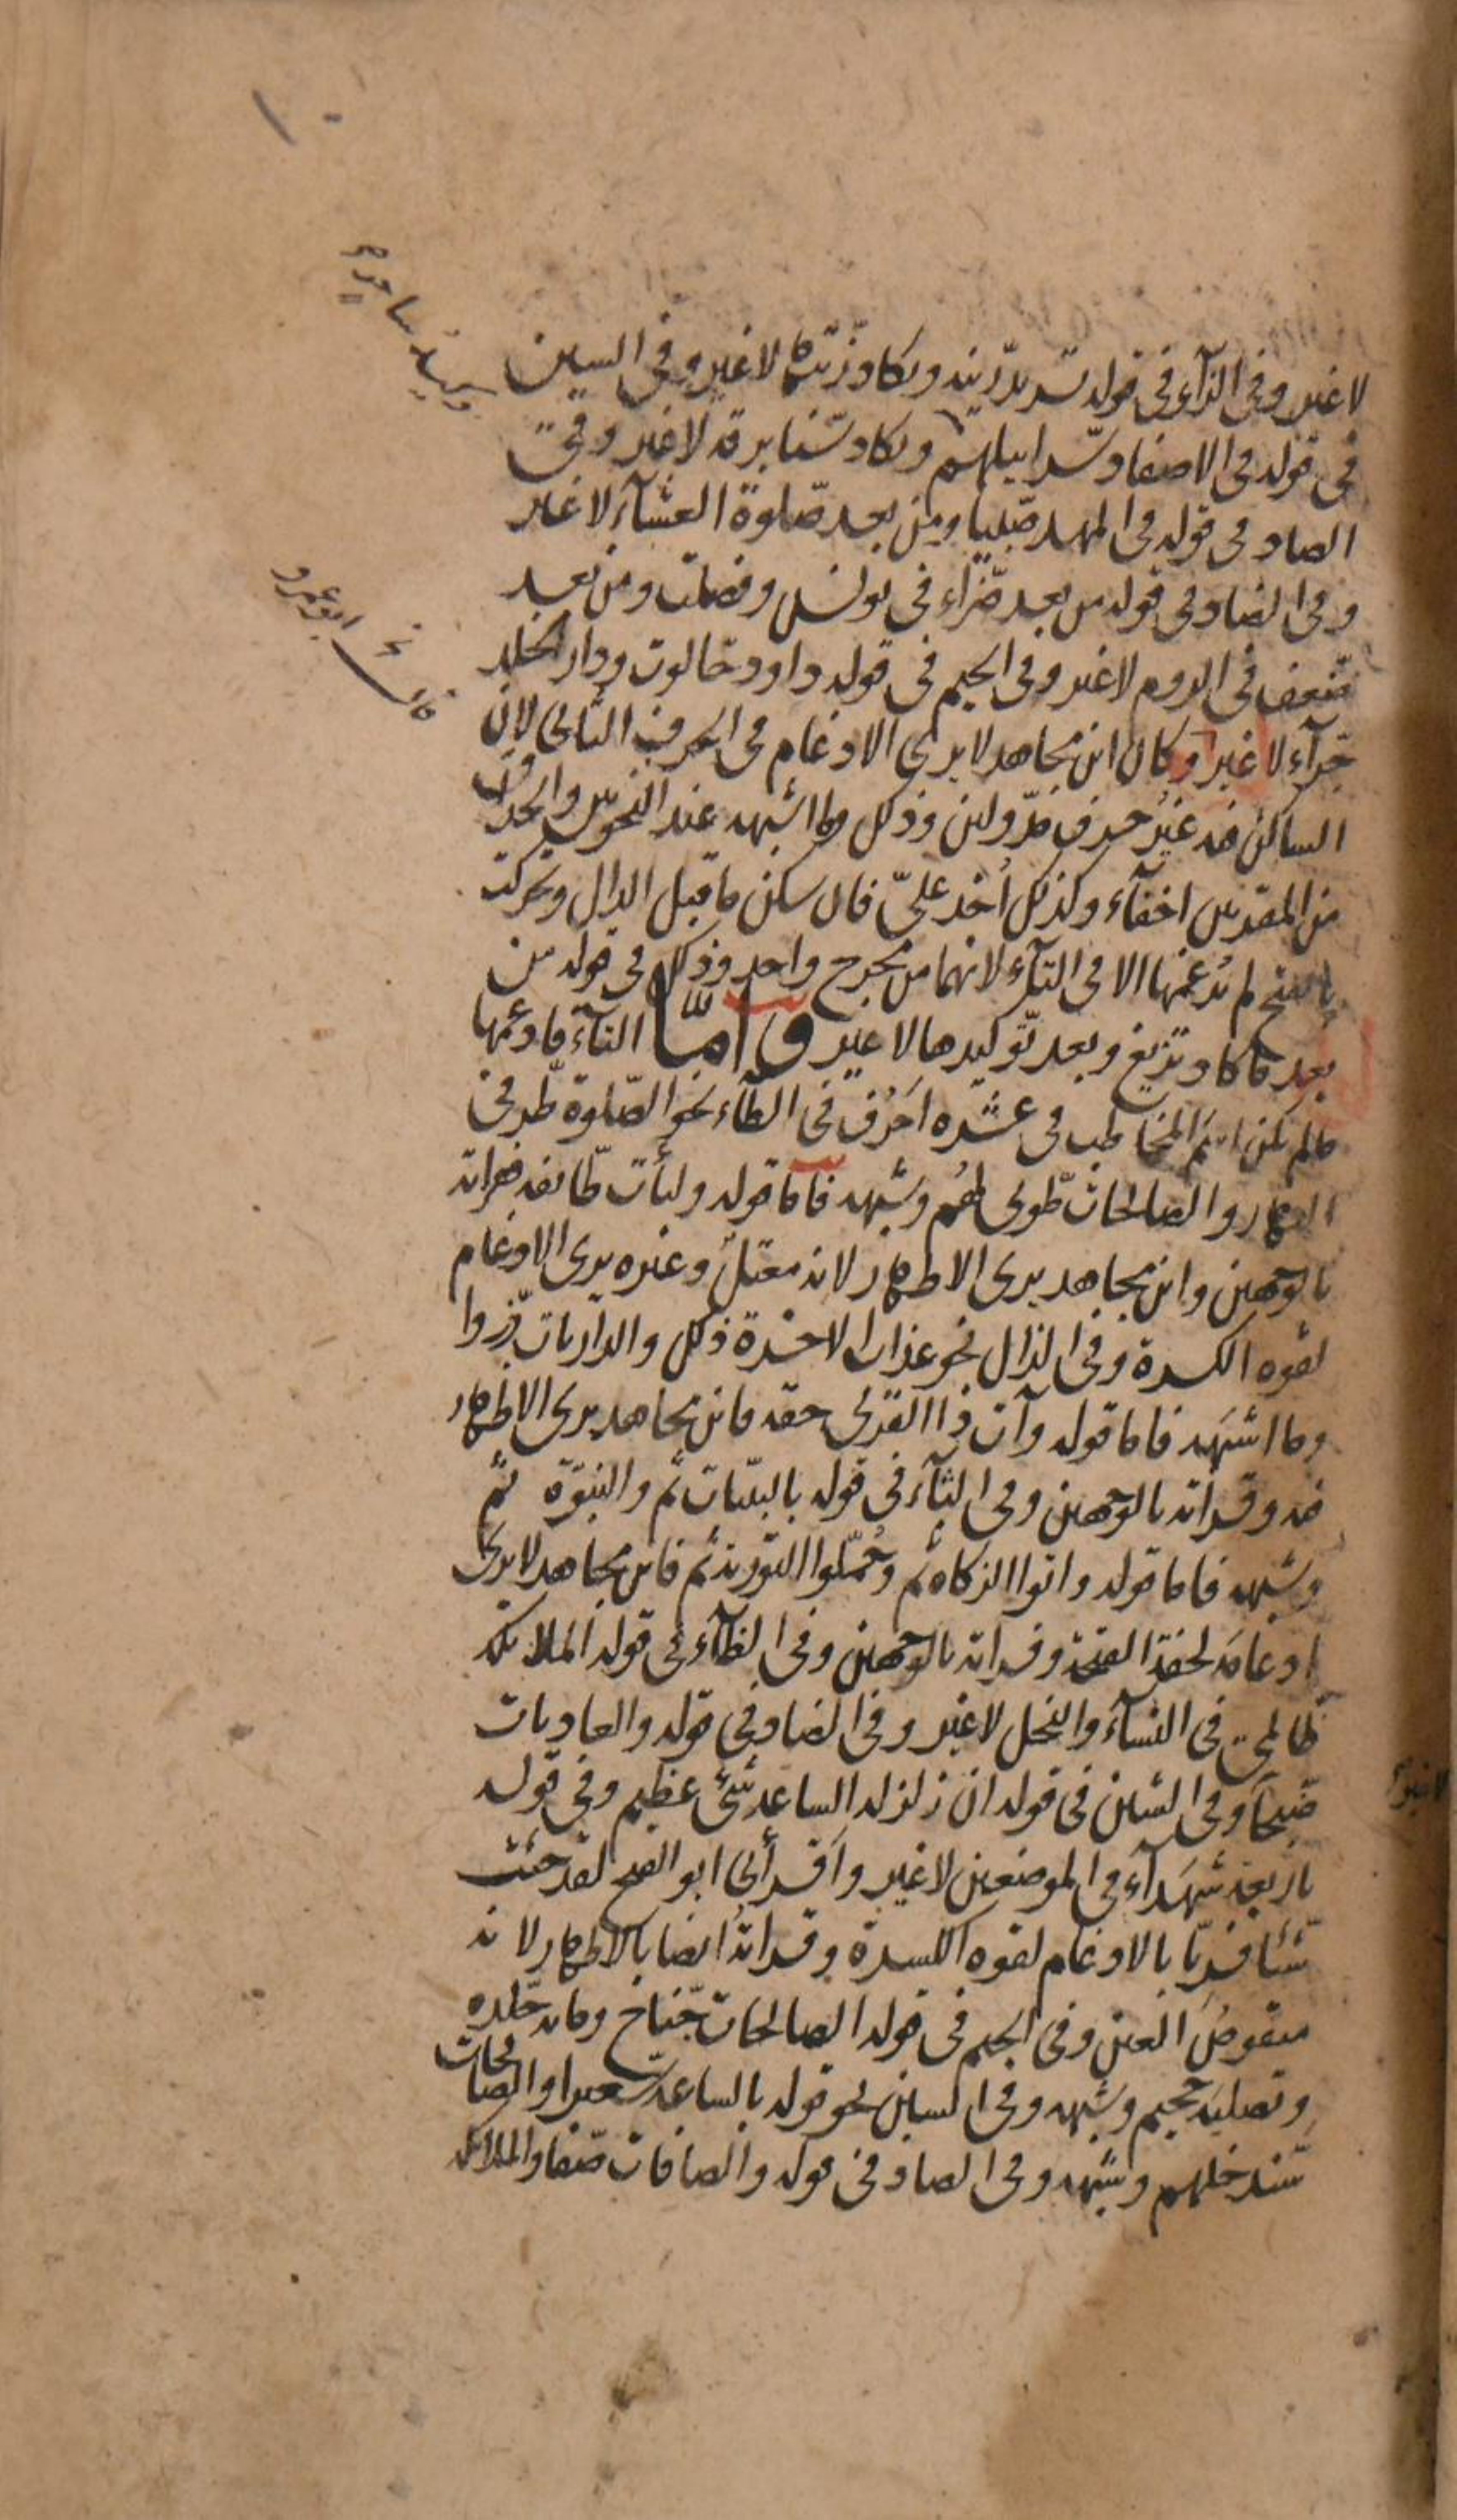 ١٠
وشهد شاهد
لا غير وفى الزآء فى قوله تريد زّينة ويكاد زّيتها لا غير وفى السين
فى قوله فى الاصفاد سّرابيلهم ويكاد سّنا برقه لا غير وفى
الصاد فى قوله فى المهد صّبيا ومن بعد صّلوة العشآء لا غير
وفى الضاد فى قوله من بعد ضّرّاء فى يونس وفصلت ومن بعد
ضّعف فى الروم لا غير وفى الجيم فى قوله داود جّالوت ودار الخلد
جّزآء لا غير وكان ابن مجاهد لا يرى الادغام فى الحرف الثانى لان
الساكن فيه غير حرف مدّ ولين وذلك وما اشبهه عند النحويين والحذاق
من المقرئين اخفآء وكذلك أخذ علىّ فان سكن ما قبل الدال وتحركت
بالفتح لم يدغمها الا فى التآء لانهما من مخرج واحد وذلك فى قوله من
بعد ما كاد تزيغ وبعد توكيدها لا غير وامّا التآء فادغمها
ما لم يكن اسم المخاطب فى عشرة احرف فى الطآء نحو الصّلوة طّرفى
النهار والصالحات طّوبى لهم وشبهه فاما قوله ولتأت طّائفة فقرأته
بالوجهين وابن مجاهد يرى الاظهار لانه معتل وغيره يرى الادغام
لقوة الكسرة وفى الذال نحو عذاب الاخرة ذلك والذاريات ذّروا
وما اشبهه فاما قوله وآت ذا القربى حقه فابن مجاهد يرى الاظهار
فيه وقرأته بالوجهين وفى الثآء فى قوله بالبينات ثّم والنبوّة ثّم
وشبهه فاما قوله واتوا الزكاة ثّم وحُمّلوا التورية ثّم فابن مجاهد لا يرى
ادغامه لخفة الفتحة وقرأته بالوجهين وفى الظآء فى قوله الملائكة
ظّالمى فى النسآء والنحل لا غير وفى الضاد فى قوله والعاديات
ضّبحا وفى الشين فى قوله ان زلزلة الساعة شّىء عظيم وفى قوله
باربعة شّهدآء فى الموضعين لا غير واقرأنى ابو الفتح لقد جئت
شّيئا فريّا بالادغام لقوة الكسرة وقرأته ايضا بالاظهار لانه
منقوص العين وفى الجيم فى قوله الصالحات جّناح ومائة جّلدة
وتصلية جّحيم وشبهه وفى السين نحو قوله بالساعة سّعيرا والصالحات
سّندخلهم وشبهه وفى الصاد فى قوله والصافات صّفا والملائكة
قال ابو عمرو